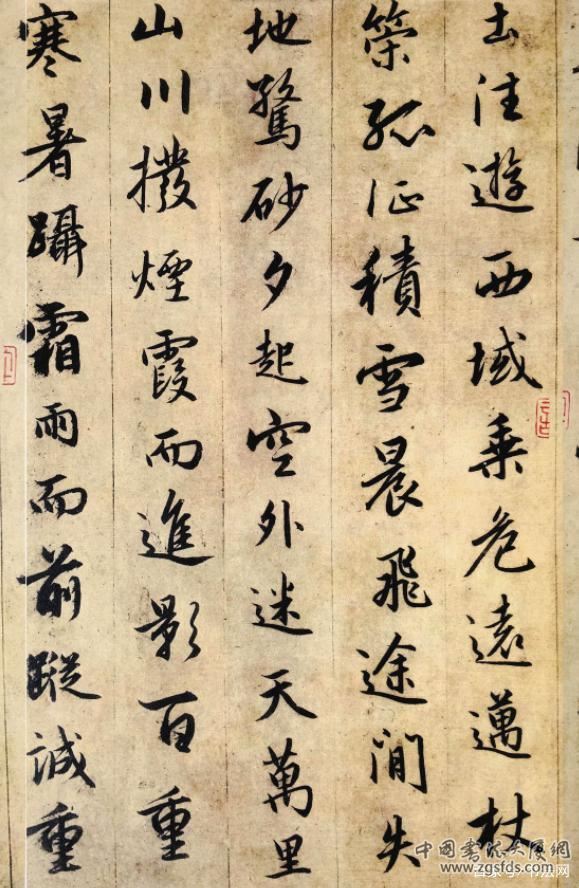 土往遊西域乘危遠邁杖
策孤征積雪晨飛途間失
地驚砂夕起空外迷天萬里
山川撥煙霞而進影百重
寒暑躡霜雨而前蹤誠重
中国书法大厦网
www.zgsfds.com